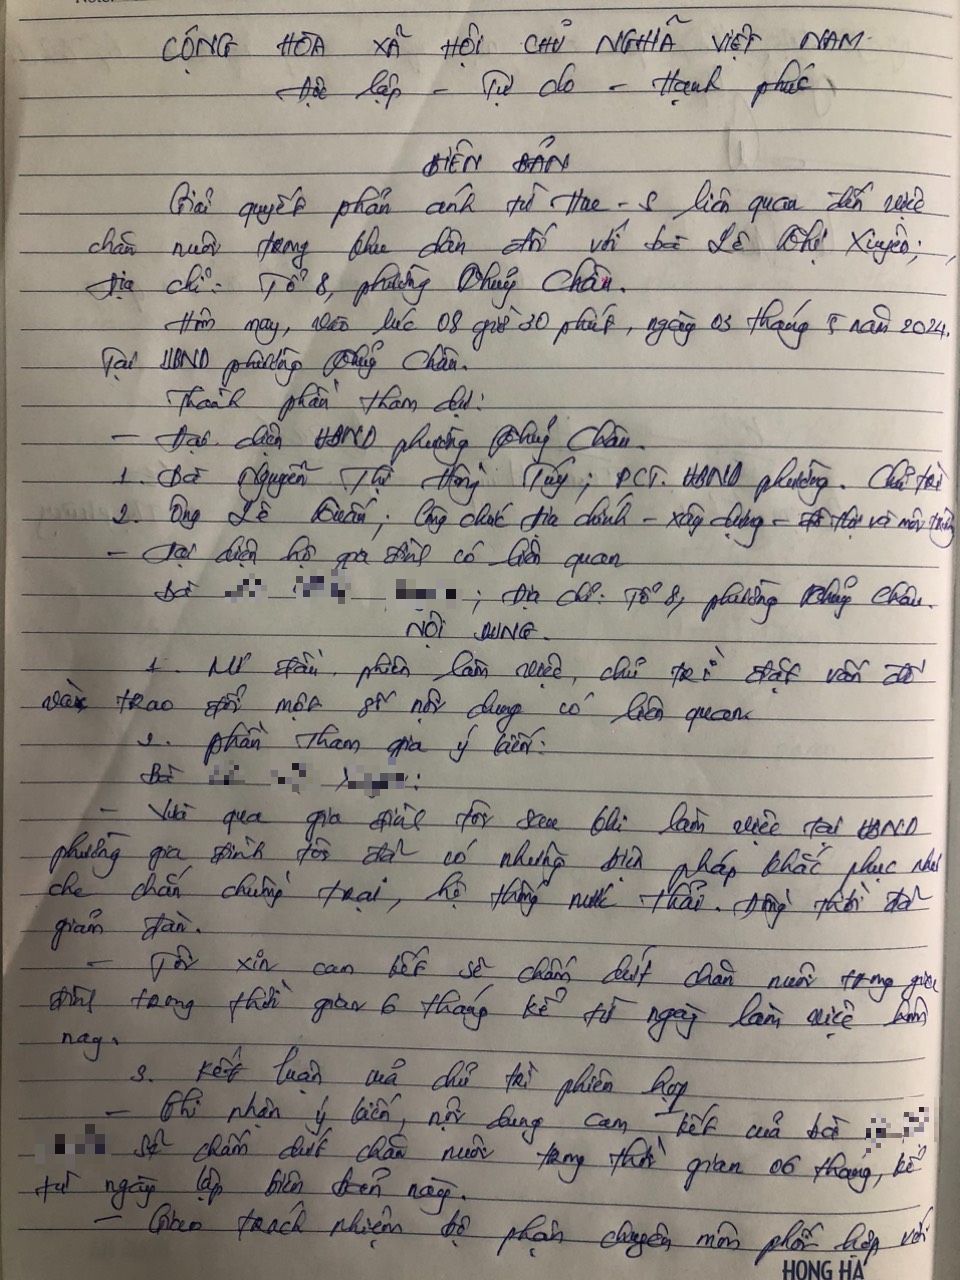 CỘNG HÒA XÃ HỘI CHỦ NGHĨA VIỆT NAM
Độc lập - Tự do - Hạnh phúc
BIÊN BẢN
Giải quyết phản ánh từ Hue-S liên quan đến việc
chăn nuôi trong khu dân đối với bà Lê Thị Xuyên;
Địa chỉ: Tổ 8, phường Thuỷ Châu.
Hôm nay, vào lúc 08 giờ 30 phút, ngày 03 tháng 5 năm 2024.
Tại UBND phường Thuỷ Châu.
Thành phần tham dự:
- Đại diện UBND phường Thuỷ Châu.
1. Bà Nguyễn Thị Hồng Túy; PCT. UBND phường. Chủ trì
2. Ông Lê Tuấn; Công chức Địa chính - xây dựng - đô thị và môi trường
- Đại diện hộ gia đình có liên quan
Bà ; Địa chỉ: Tổ 8, phường Thuỷ Châu.
NỘI DUNG.
1. Mở đầu phiên làm việc, chủ trì đặt vấn đề
và trao đổi một số nội dung có liên quan
2. phần tham gia ý kiến:
Bà :
- Vừa qua gia đình tôi sau khi làm việc tại UBND
phường gia đình tôi đã có những biện pháp khắc phục như
che chắn chuồng trại, hệ thống nước thải. Đồng thời đã
giảm đàn.
- Tôi xin cam kết sẽ chấm dứt chăn nuôi trong gia
đình trong thời gian 6 tháng kể từ ngày làm việc hôm
nay.
3. Kết luận của chủ trì phiên họp
- Ghi nhận ý kiến, nội dung cam kết của bà
sẽ chấm dứt chăn nuôi trong thời gian 06 tháng, kể
từ ngày lập biên bản này.
- Giao trách nhiệm bộ phận chuyên môn phối hợp với
HONG HA